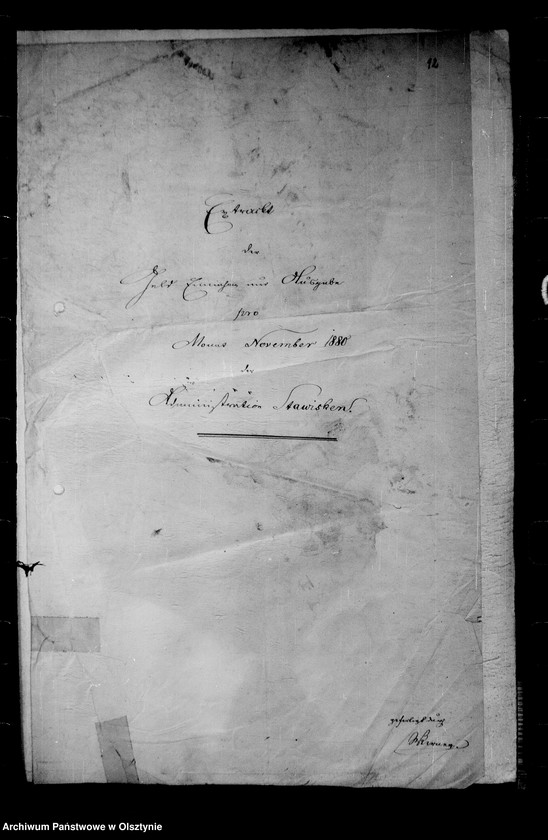 12
Extract
der
Geld Einnahme und Ausgabe
pro
Monat November 1880
der
Administration Stawisken.
gefertigt durch
Archiwum Państwowe w Olsztynie